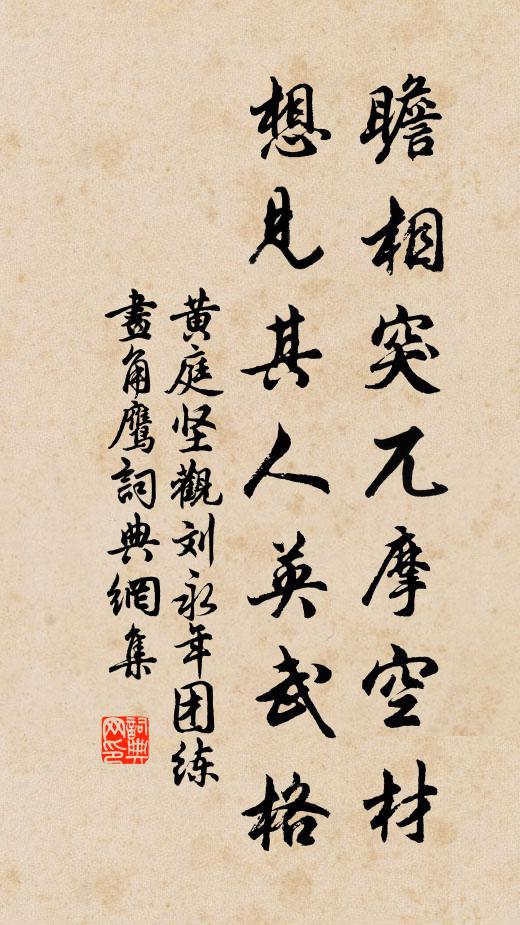 瞻相突兀摩空材
想见其人英武格
黄庭坚觀刘永年团练
畫角鷹詞典網集
詞典网印